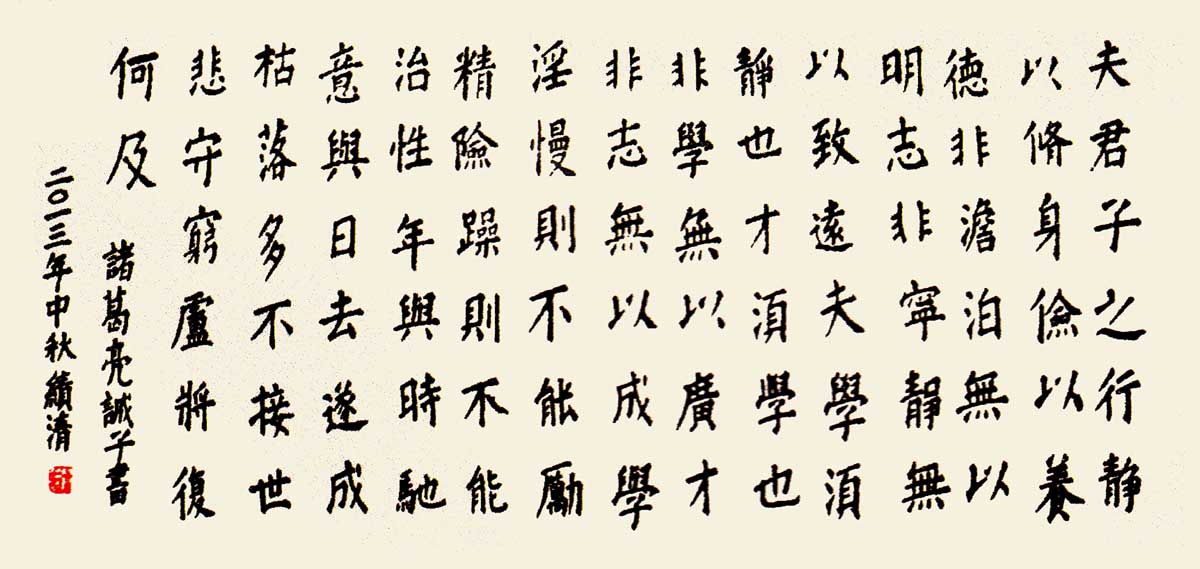 夫君子之行静
以脩身儉以養
德非澹泊無以
明志非寧靜無
以致遠夫學須
靜也才須學也
非學無以廣才
非志無以成學
淫慢則不能勵
精險躁則不能
治性年與時馳
意與日去遂成
枯落多不接世
悲守窮盧將復
何及
諸葛亮誡子書
二〇一三年中秋績清